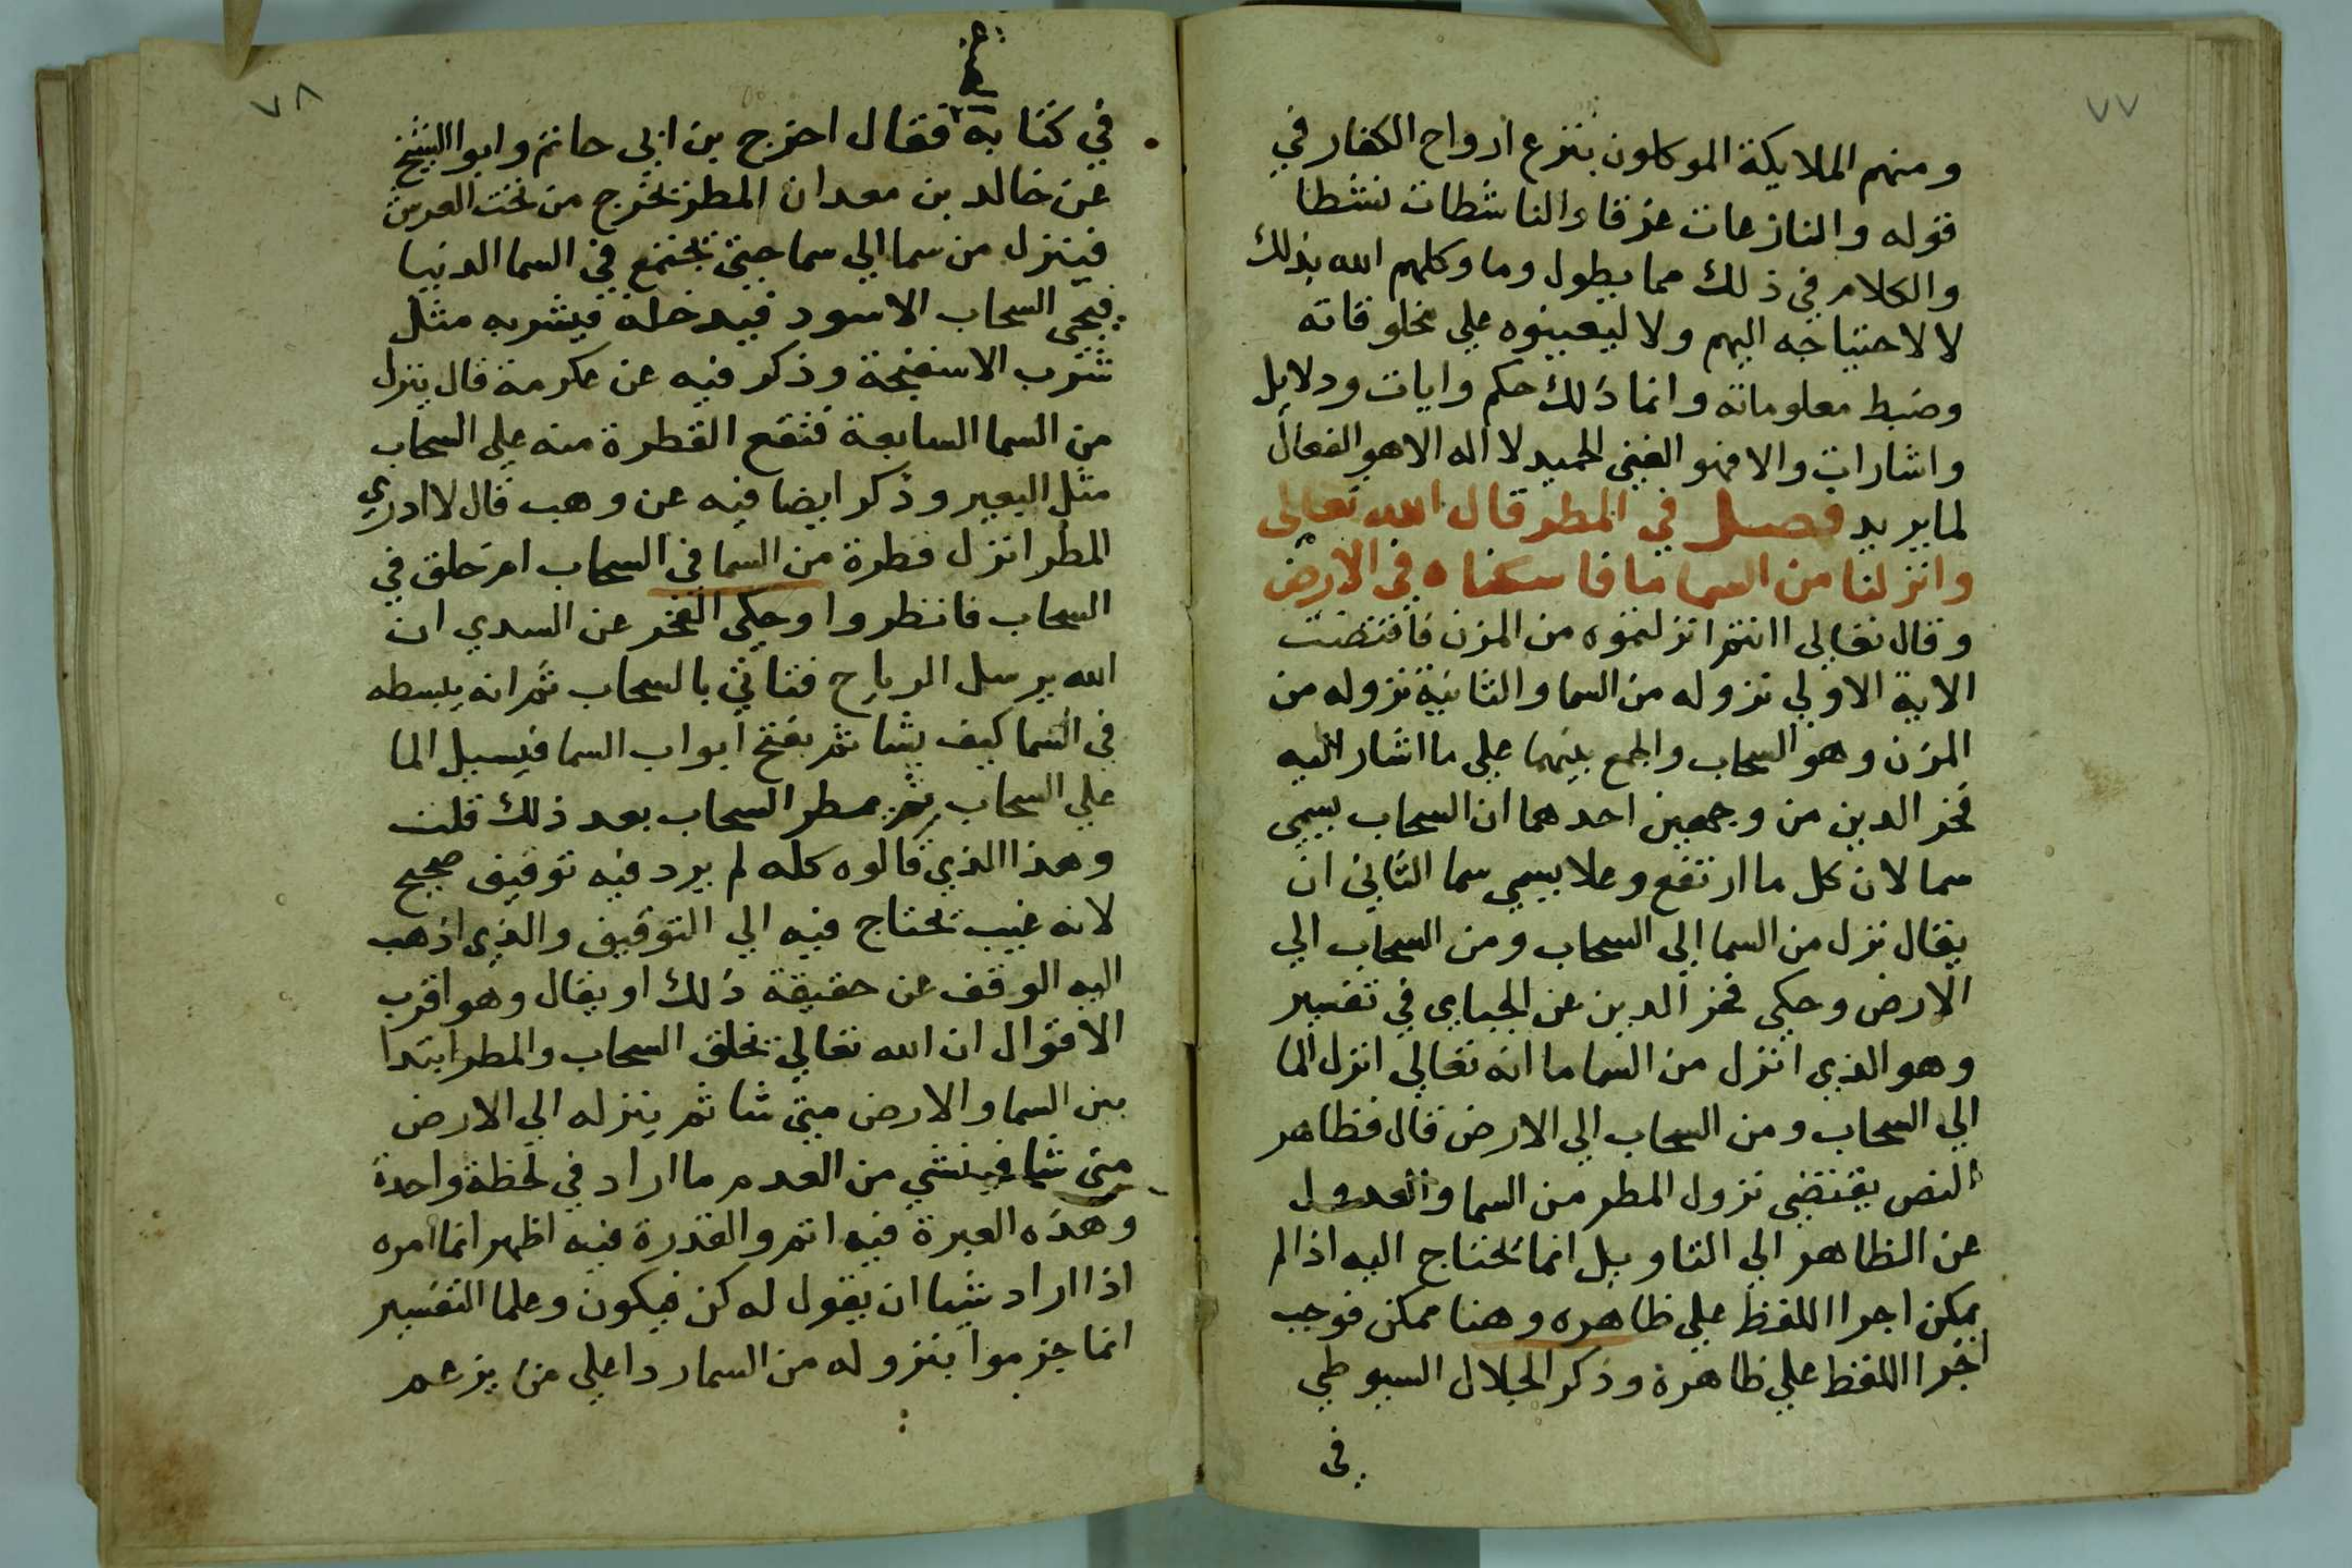 ٧٧
ومنهم الملايكة الموكلون بنزع ارواح الكفار في
قوله والنازعات غرقا والناشطات نشطا
والكلام في ذلك مما يطول وما وكلهم الله بذلك
لا لاحتياجه اليهم ولا ليعينوه علي مخلوقاته
وضبط معلوماته وانما ذلك حكم وايات ودلايل
واشارات والا فهو الغني الحميد لا اله الا هو الفعال
لما يريد فصل في المطر قال الله تعالى
وانزلنا من السما ما فاسكناه في الارض
وقال تعالى اانتم انزلتموه من المزن فاقتضت
الاية الاولي نزوله من السما والثانية نزوله من
المزن وهو السحاب والجمع بينهما علي ما اشار اليه
فخر الدين من وجهين احدهما ان السحاب يسمي
سما لان كل ما ارتفع وعلا يسمي سما الثاني ان
يقال نزل من السما الي السحاب ومن السحاب الي
الارض وحكي فخر الدين عن الجباي في تفسير
وهو الذي انزل من السما ما انه تعالي انزل الما
الي السحاب ومن السحاب الي الارض قال فظاهر
النص يقتضي نزول المطر من السما والعدول
عن الظاهر الي التاويل انما يحتاج اليه اذا لم
يمكن اجرا اللفظ علي ظاهره وهنا ممكن فوجب
اجرا اللفظ علي ظاهره وذكر الجلال السيوطي
في
٧٨
في كتابه فقال اخرج بن ابي حاتم وابوا الشيخ
عن خالد بن معدان المطر يخرج من تحت العرش
فينزل من سما الي سما حتي يجتمع في السما الدنيا
فيجي السحاب الاسود فيدخله فيشربه مثل
شرب الاسفنجة وذكر فيه عن عكرمة قال ينزل
من السما السابعة فتقع القطرة منه علي السحاب
مثل البعير وذكر ايضا فيه عن وهب قال لا ادري
المطر انزل قطرة من السما في السحاب ام خلق في
السحاب فانظروا وحكي الفخر عن السدي ان
الله يرسل الرياح فتاتي بالسحاب ثم انه يبسطه
في السما كيف يشا ثم يفتح ابواب السما فيسيل الما
علي السحاب ثم يمطر السحاب بعد ذلك قلت
وهذا الذي قالوه كله لم يرد فيه توقيف صحيح
لانه غيب يحتاج فيه الي التوقيف والذي اذهب
اليه الوقف عن حقيقة ذلك او يقال وهو اقرب
الاقوال ان الله تعالي يخلق السحاب والمطر ابتدا
بين السما والارض متي شا ثم ينزله الي الارض
متي شا فينشي من العدم ما اراد في لحظة واحدة
وهذه العبرة فيه اتم والقدرة فيه اظهر انما امره
اذا اراد شيا ان يقول له كن فيكون وعلما التفسير
انما جزموا بنزوله من السما ردا علي من يزعم